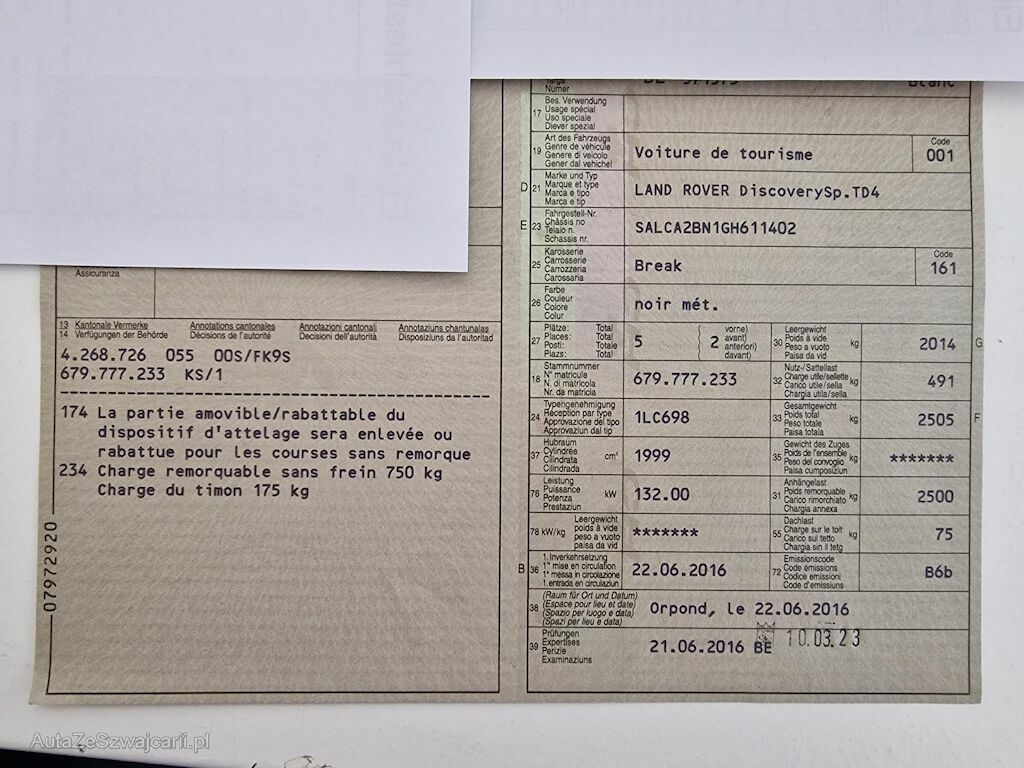 Numer
17
Bes. Verwendung
Usage spécial
Uso speciale
Diever spezial
19
Art des Fahrzeugs
Genre de véhicule
Genere di veicolo
Gener dal vehichel
Voiture de tourisme
Code
001
D 21
Marke und Typ
Marque et type
Marca e tipo
Marca e tip
LAND ROVER DiscoverySp.TD4
E 23
Fahrgestell-Nr.
Châssis no
Telaio n.
Schassis nr.
SALCA2BN1GH611402
25
Karosserie
Carrosserie
Carrozzeria
Carossaria
Break
Code
161
26
Farbe
Couleur
Colore
Colur
noir mét.
27
Plätze: Total
Places: Total
Posti: Totale
Plazs: Total
5
2
vorne)
avant)
anteriori)
davant)
30
Leergewicht
Poids à vide
Peso a vuoto
Paisa da vid
kg
2014
G
18
Stammnummer
N° matricule
N. di matricola
Nr. da matricla
679.777.233
32
Nutz-/Sattellast
Charge utile/sellette
Carico utile/sella
Chargia utila/sella
kg
491
24
Typengenehmigung
Réception par type
Approvazione del tipo
Approvaziun dal tip
1LC698
33
Gesamtgewicht
Poids total
Peso totale
Paisa totala
kg
2505
F
37
Hubraum
Cylindrée
Cilindrata
Cilindrada
cm³
1999
35
Gewicht des Zuges
Poids de l'ensemble
Peso del convoglio
Paisa cumposiziun
kg
*******
76
Leistung
Puissance
Potenza
Prestaziun
kW
132.00
31
Anhängelast
Poids remorquable
Carico rimorchiato
Chargia annexa
kg
2500
78 kW/kg
Leergewicht
poids à vide
peso a vuoto
paisa da vid
*******
55
Dachlast
Charge sur le toit
Carico sul tetto
Chargia sin il tetg
kg
75
B 36
1. Inverkehrsetzung
1re mise en circulation
1a messa in circolazione
1. entrada en circulaziun
22.06.2016
72
Emissionscode
Code émissions
Codice emissioni
Code d'emissiuns
B6b
38
(Raum für Ort und Datum)
(Espace pour lieu et date)
(Spazio per luogo e data)
(Spazi per lieu e data)
Orpond, le 22.06.2016
39
Prüfungen
Expertises
Perizie
Examinaziuns
21.06.2016 BE
10.03.23
Assicuranza
13 Kantonale Vermerke Annotations cantonales Annotazioni cantonali Annotaziuns chantunalas
14 Verfügungen der Behörde Décisions de l'autorité Decisioni dell'autorità Disposiziuns da l'autoritad
4.268.726 055 00S/FK9S
679.777.233 KS/1
174 La partie amovible/rabattable du
dispositif d'attelage sera enlevée ou
rabattue pour les courses sans remorque
234 Charge remorquable sans frein 750 kg
Charge du timon 175 kg
07972920
AutaZeSzwajcarii.pl